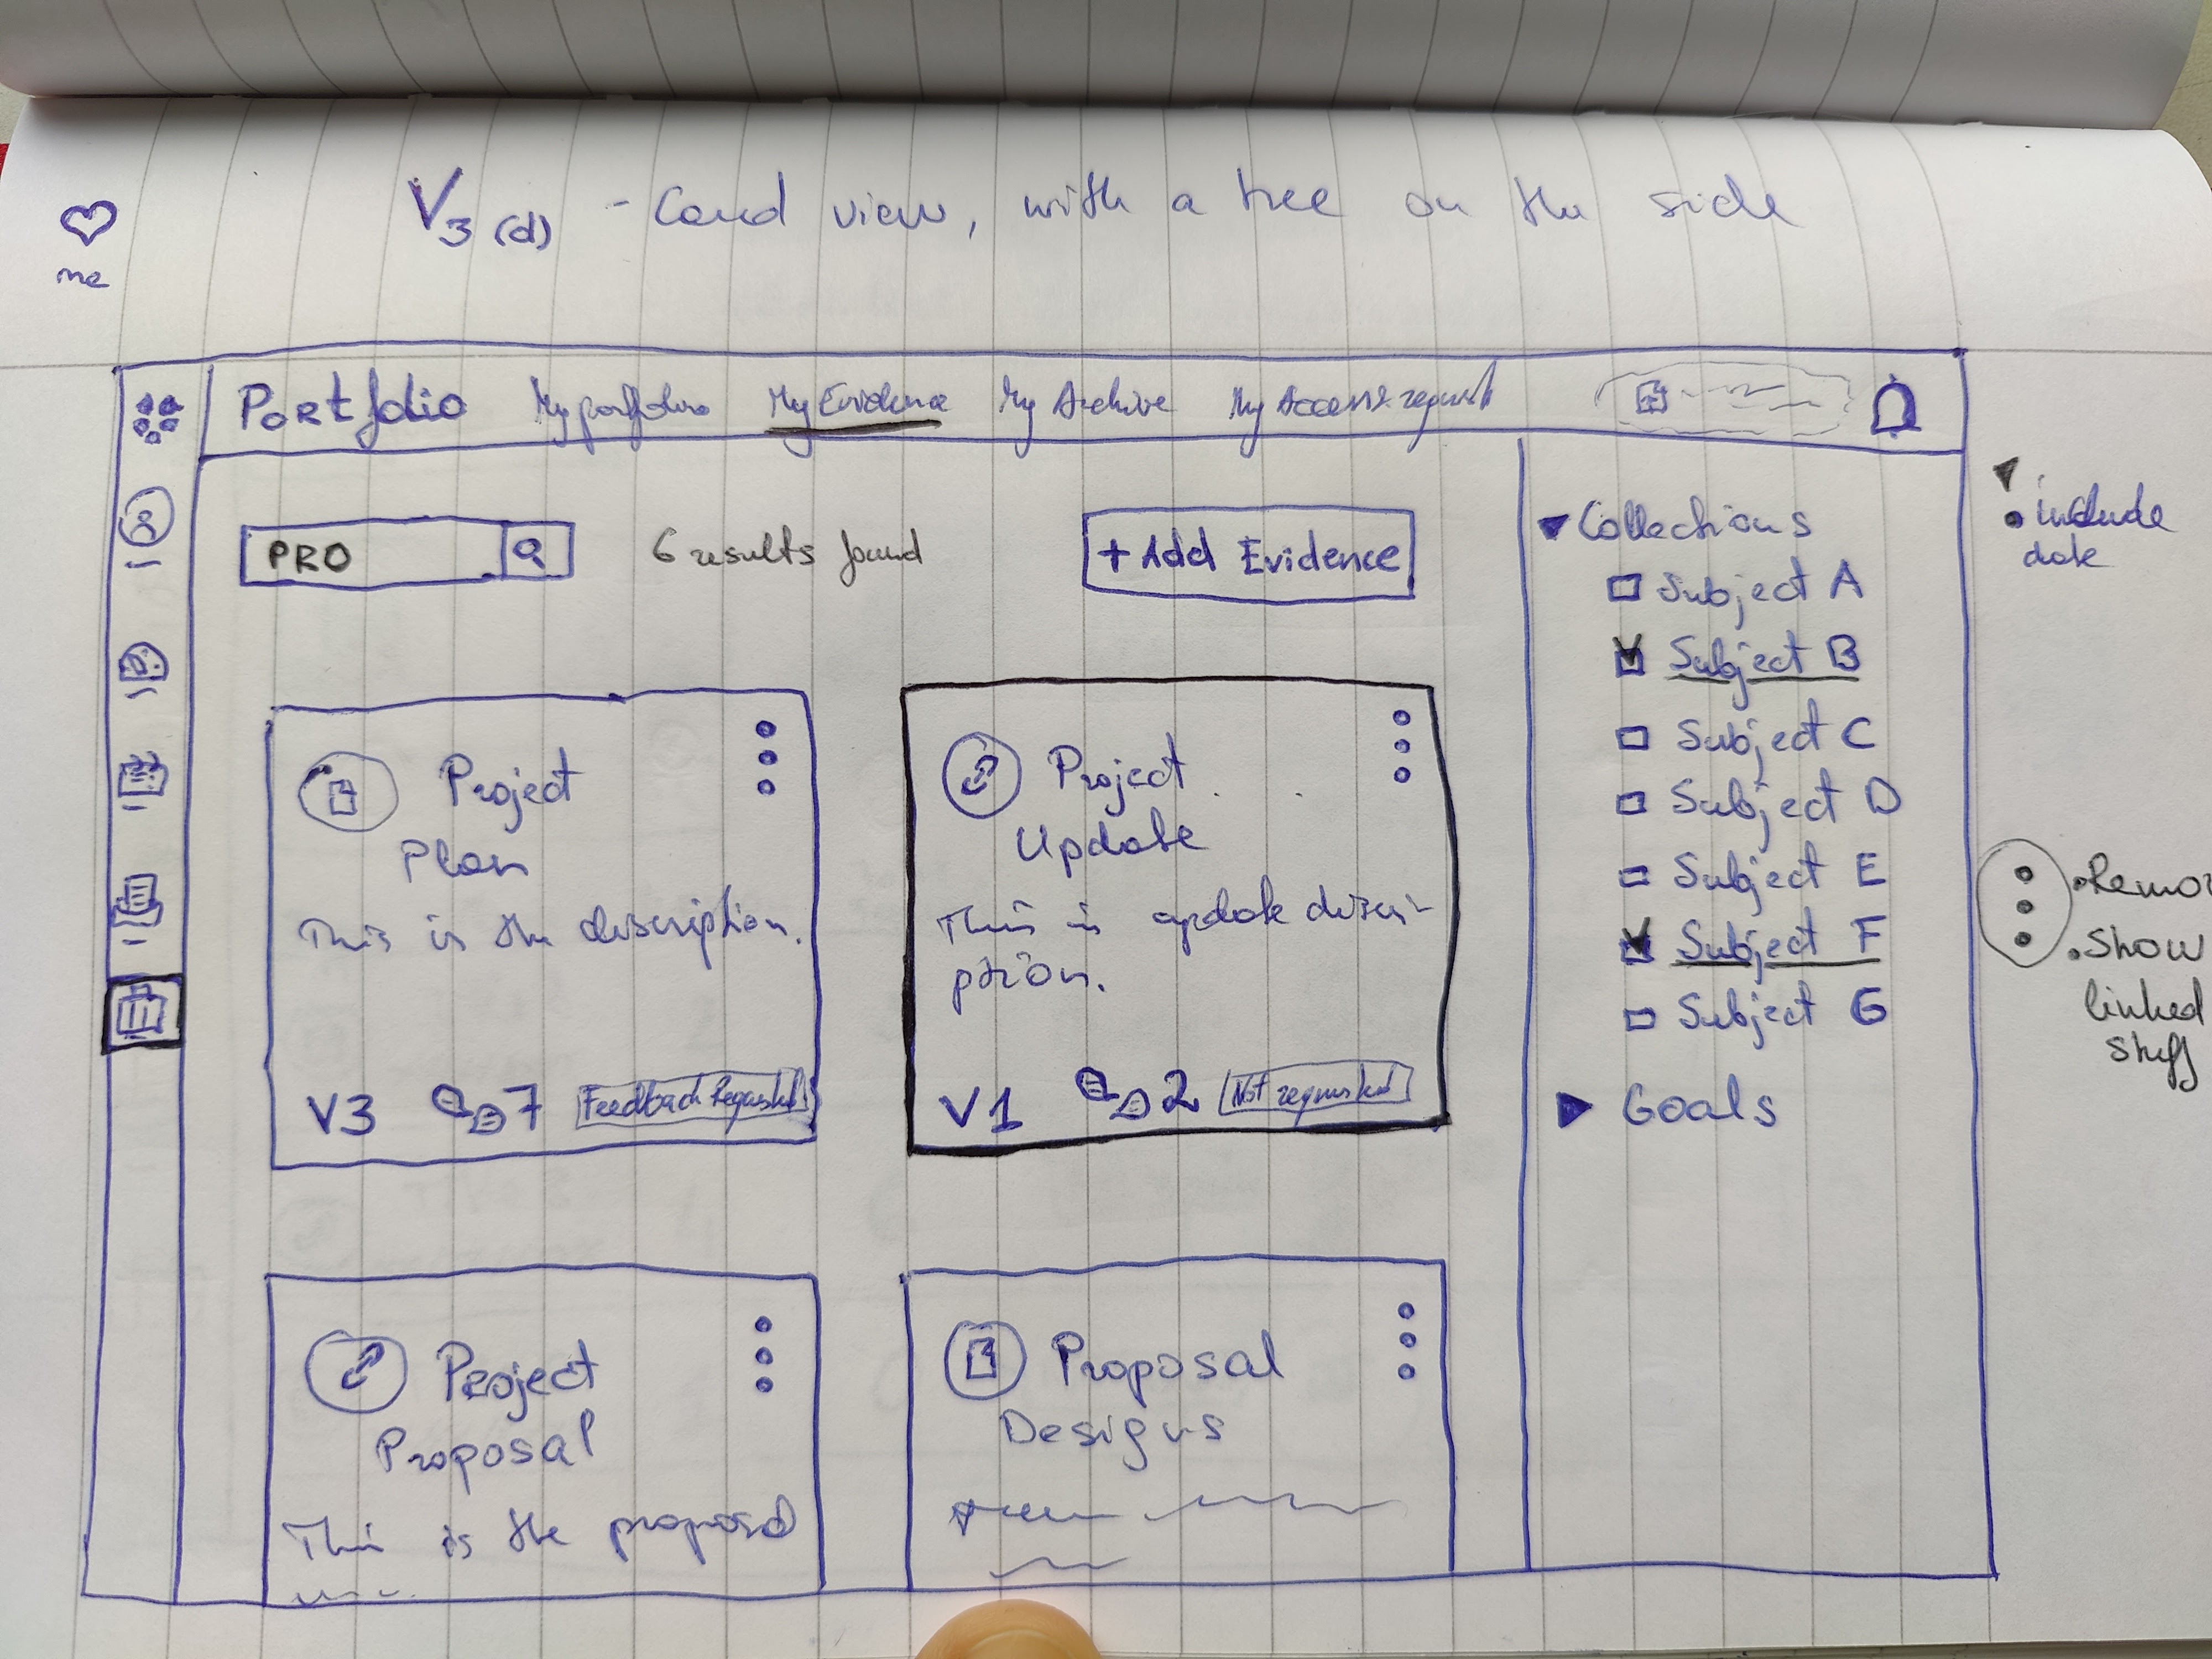 V3 (d) - Card view, with a tree on the side
me
Portfolio My portfolio My Evidence My Archive My Access request
PRO
6 results found
+ Add Evidence
Project
Plan
This is the description.
V3 7 Feedback Requested
Project
Update
This is update descri-
ption.
V1 2 Not requested
Project
Proposal
This is the proposal
Proposal
Designs
Collections
Subject A
Subject B
Subject C
Subject D
Subject E
Subject F
Subject G
Goals
• include
date
• Show
linked
stuff